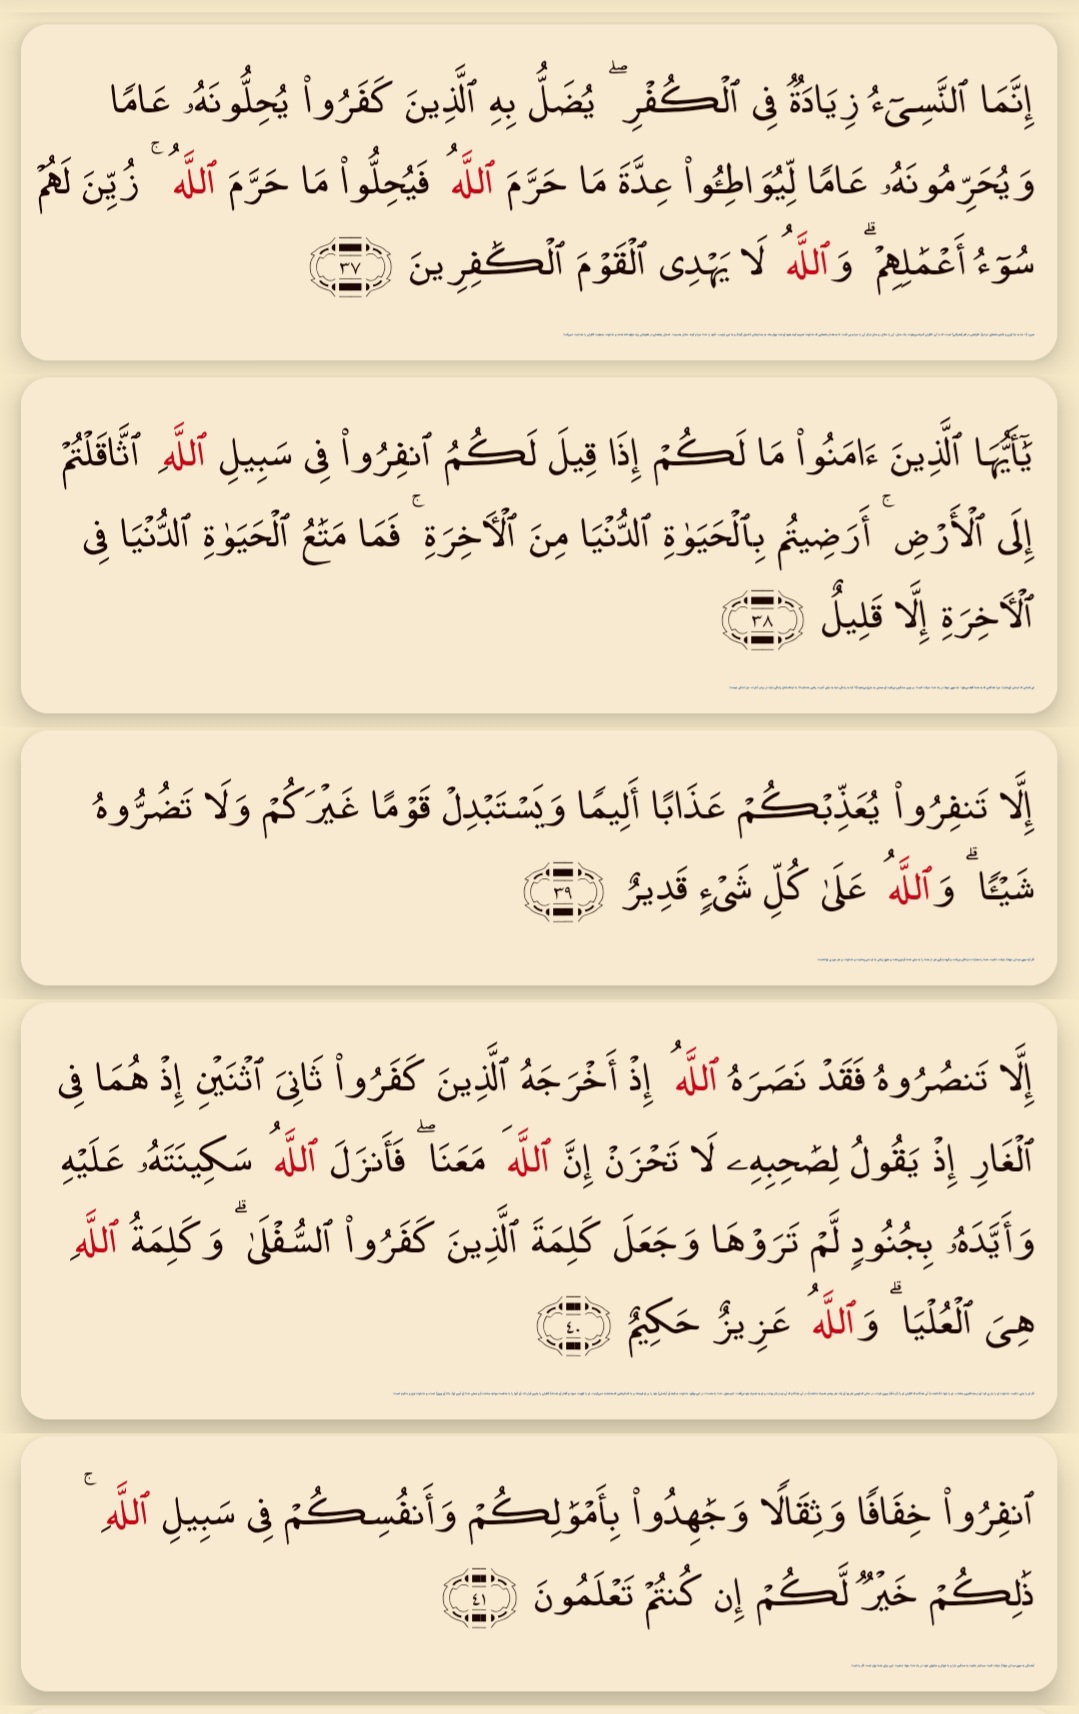 إِنَّمَا ٱلنَّسِىٓءُ زِيَادَةٌ فِى ٱلْكُفْرِ ۖ يُضَلُّ بِهِ ٱلَّذِينَ كَفَرُوا۟ يُحِلُّونَهُۥ عَامًا
وَيُحَرِّمُونَهُۥ عَامًا لِّيُوَاطِـُٔوا۟ عِدَّةَ مَا حَرَّمَ ٱللَّهُ فَيُحِلُّوا۟ مَا حَرَّمَ ٱللَّهُ ۚ زُيِّنَ لَهُمْ
سُوٓءُ أَعْمَـٰلِهِمْ ۗ وَٱللَّهُ لَا يَهْدِى ٱلْقَوْمَ ٱلْكَـٰفِرِينَ ٣٧
يَـٰٓأَيُّهَا ٱلَّذِينَ ءَامَنُوا۟ مَا لَكُمْ إِذَا قِيلَ لَكُمُ ٱنفِرُوا۟ فِى سَبِيلِ ٱللَّهِ ٱثَّاقَلْتُمْ
إِلَى ٱلْأَرْضِ ۚ أَرَضِيتُم بِٱلْحَيَوٰةِ ٱلدُّنْيَا مِنَ ٱلْـَٔاخِرَةِ ۚ فَمَا مَتَـٰعُ ٱلْحَيَوٰةِ ٱلدُّنْيَا فِى
ٱلْـَٔاخِرَةِ إِلَّا قَلِيلٌ ٣٨
إِلَّا تَنفِرُوا۟ يُعَذِّبْكُمْ عَذَابًا أَلِيمًا وَيَسْتَبْدِلْ قَوْمًا غَيْرَكُمْ وَلَا تَضُرُّوهُ
شَيْـًٔا ۗ وَٱللَّهُ عَلَىٰ كُلِّ شَىْءٍ قَدِيرٌ ٣٩
إِلَّا تَنصُرُوهُ فَقَدْ نَصَرَهُ ٱللَّهُ إِذْ أَخْرَجَهُ ٱلَّذِينَ كَفَرُوا۟ ثَانِىَ ٱثْنَيْنِ إِذْ هُمَا فِى
ٱلْغَارِ إِذْ يَقُولُ لِصَـٰحِبِهِۦ لَا تَحْزَنْ إِنَّ ٱللَّهَ مَعَنَا ۖ فَأَنزَلَ ٱللَّهُ سَكِينَتَهُۥ عَلَيْهِ
وَأَيَّدَهُۥ بِجُنُودٍ لَّمْ تَرَوْهَا وَجَعَلَ كَلِمَةَ ٱلَّذِينَ كَفَرُوا۟ ٱلسُّفْلَىٰ ۗ وَكَلِمَةُ ٱللَّهِ
هِىَ ٱلْعُلْيَا ۗ وَٱللَّهُ عَزِيزٌ حَكِيمٌ ٤٠
ٱنفِرُوا۟ خِفَافًا وَثِقَالًا وَجَـٰهِدُوا۟ بِأَمْوَٰلِكُمْ وَأَنفُسِكُمْ فِى سَبِيلِ ٱللَّهِ ۚ
ذَٰلِكُمْ خَيْرٌ لَّكُمْ إِن كُنتُمْ تَعْلَمُونَ ٤١